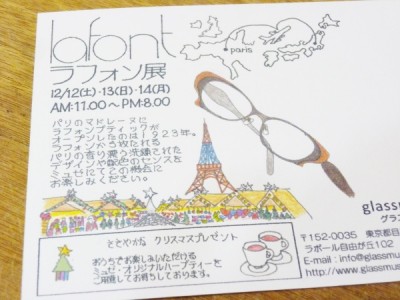 lafont
paris
ラフォン展
12/12(土)・13(日)・14(月)
AM:11.00〜PM:8.00
パリのマドレーヌに
ラフォンブティックが
オープンしたのは1923年。
ラフォンから放たれる
パリの香り漂う洗練された
デザインや配色のセンスを
ミュゼにてこの機会に
お楽しみください。
ささやかな クリスマスプレゼント
おうちでお楽しみいただける
ミュゼ・オリジナルハーブティーを
ご用意してお待ちしております。
glassm
グラ
〒152-0035 東京都目
ラポール自由が丘102
E-mail : info@glassm
http://www.glassmus